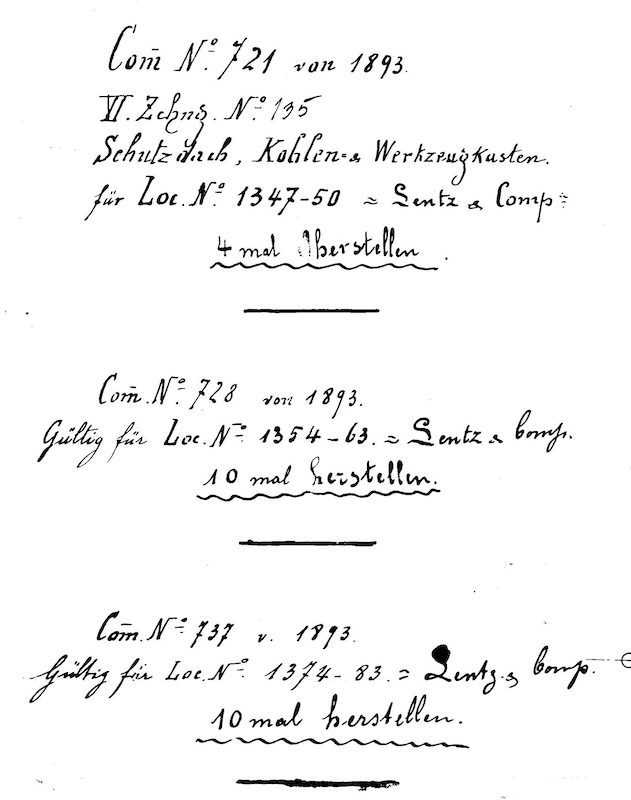 Com̄ No. 721 von 1893.
VI. Zchng. No. 135
Schutzdach, Kohlen- & Werkzeugkasten.
für Loc. No. 1347-50 = Lentz & Comp.
4 mal herstellen.
Com̄. No. 728 von 1893.
Gültig für Loc. No. 1354-63. = Lentz & Comp.
10 mal herstellen.
Com̄. No. 737 v. 1893.
Gültig für Loc. No. 1374-83. = Lentz & Comp.
10 mal herstellen.